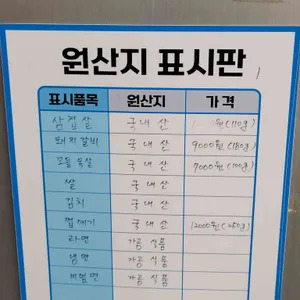 원산지 표시판
표시품목 원산지 가격
삼겹살 국내산 원(110g)
돼지갈비 국내산 9000원(180g)
모듬목살 국내산 7000원(100g)
쌀 국내산
김치 국내산
껍데기 국내산 12000원(250g)
라면 가공식품
냉면 가공식품
비빔면 가공식품